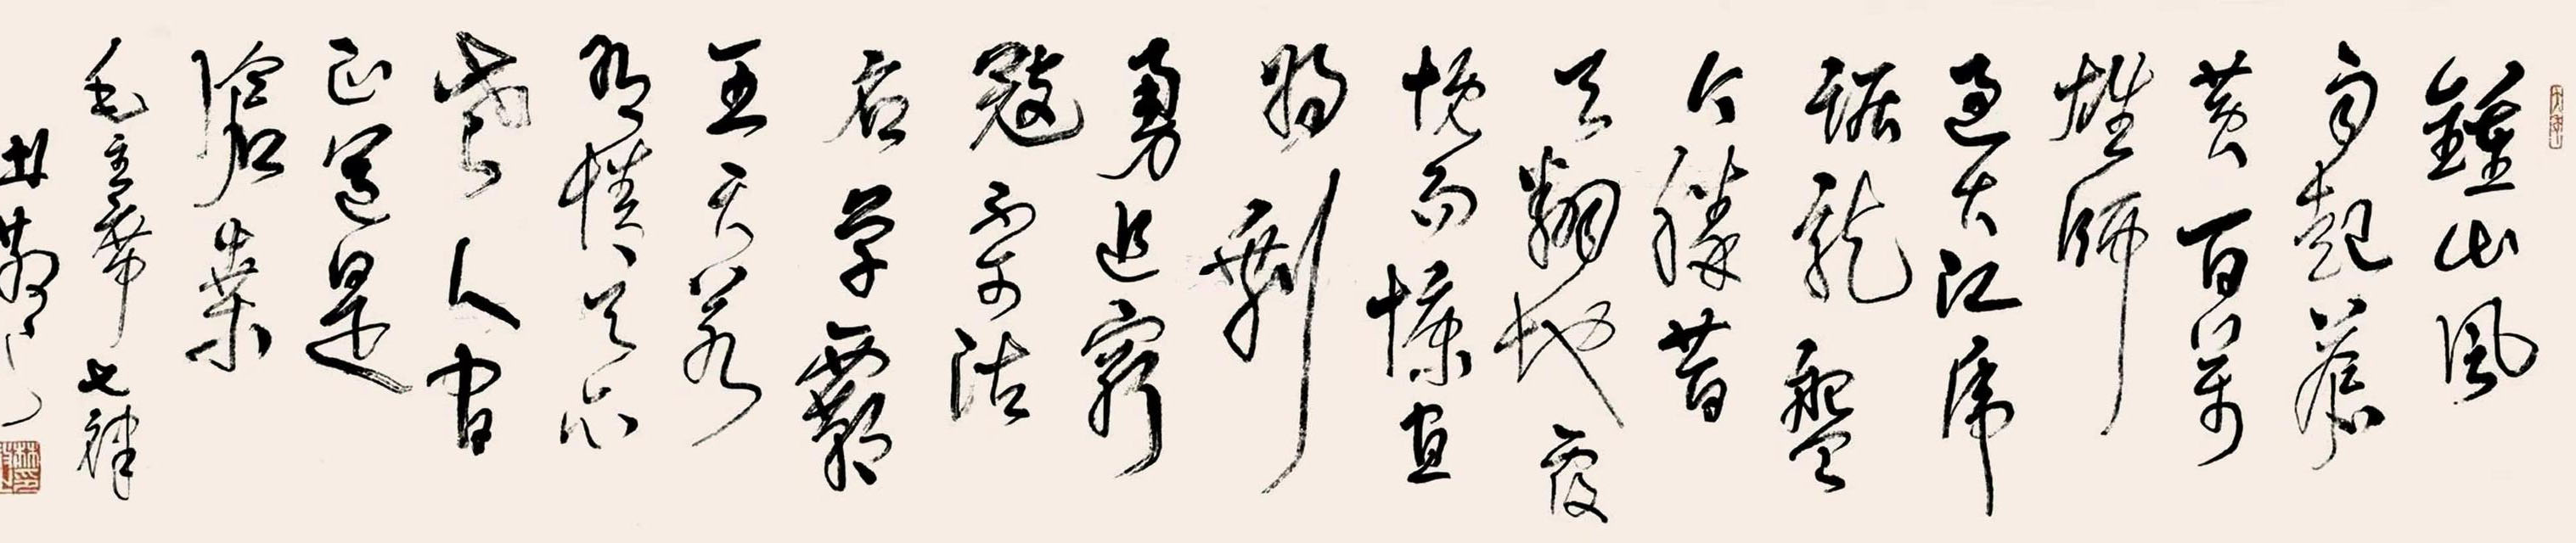 鍾山風
雨起蒼
黄百萬
雄師
過大江虎
踞龍盤
今勝昔
天翻地覆
慨而慷宜
将剩
勇追窮
寇不可沽
名学霸
王天若
有情天亦
老人间
正道是
滄桑
毛主席七律
林散之